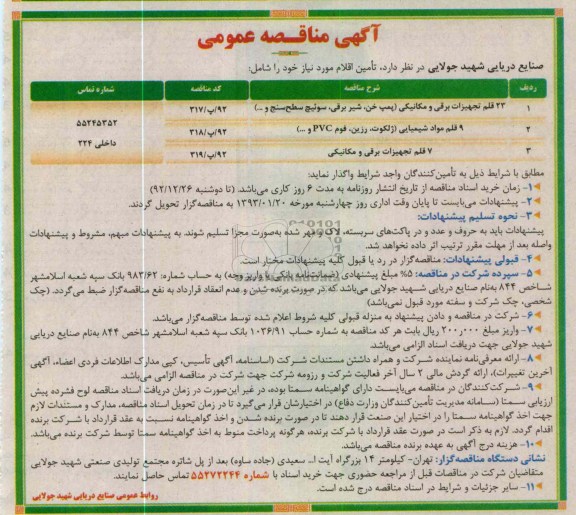 آگهی مناقصه عمومی
صنایع دریایی شهید جولایی در نظر دارد، تأمین اقلام مورد نیاز خود را شامل:
ردیف شرح مناقصه کد مناقصه شماره تماس
۱ ۲۳ قلم تجهیزات برقی و مکانیکی (پمپ خن، شیر برقی، سوئیچ سطح‌سنج و ...) ۹۲/پ/۳۱۷
۲ ۹ قلم مواد شیمیایی (ژلکوت، رزین، فوم PVC و ...) ۹۲/پ/۳۱۸
۳ ۷ قلم تجهیزات برقی و مکانیکی ۹۲/پ/۳۱۹
۵۵۲۴۵۳۵۲
داخلی ۲۲۴
مطابق با شرایط ذیل به تأمین‌کنندگان واجد شرایط واگذار نماید:
۱- زمان خرید اسناد مناقصه از تاریخ انتشار روزنامه به مدت ۶ روز کاری می‌باشد. (تا دوشنبه ۹۲/۱۲/۲۶)
۲- پیشنهادات می‌بایست تا پایان وقت اداری روز چهارشنبه مورخه ۱۳۹۳/۰۱/۲۰ به مناقصه‌گزار تحویل گردند.
۳- نحوه تسلیم پیشنهادات:
پیشنهادات باید به حروف و عدد و در پاکت‌های سربسته، لاک و مهر شده به‌صورت مجزا تسلیم شوند. به پیشنهادات مبهم، مشروط و پیشنهادات
واصله بعد از مهلت مقرر ترتیب اثر داده نخواهد شد.
۴- قبولی پیشنهادات: مناقصه‌گزار در رد یا قبول کلیه پیشنهادات مختار است.
۵- سپرده شرکت در مناقصه: ۵% مبلغ پیشنهادی (ضمانت‌نامه بانکی یا واریز وجه) به حساب شماره: ۹۸۳/۶۲ بانک سپه شعبه اسلامشهر
شاخص ۸۴۴ به‌نام صنایع دریایی شهید جولایی می‌باشد که در صورت برنده شدن و عدم انعقاد قرارداد به نفع مناقصه‌گزار ضبط می‌گردد. (چک
شخصی، چک شرکت و سفته مورد قبول نمی‌باشد)
۶- شرکت در مناقصه و دادن پیشنهاد به منزله قبولی کلیه شروط اعلام شده توسط مناقصه‌گزار می‌باشد.
۷- واریز مبلغ ۲۰۰,۰۰۰ ریال بابت هر کد مناقصه به شماره حساب ۱۰۳۶/۹۱ بانک سپه شعبه اسلامشهر شاخص ۸۴۴ به‌نام صنایع دریایی
شهید جولایی جهت دریافت اسناد الزامی می‌باشد.
۸- ارائه معرفی‌نامه نماینده شرکت و همراه داشتن مستندات شرکت (اساسنامه، آگهی تأسیس، کپی مدارک اطلاعات فردی اعضاء، آگهی
آخرین تغییرات)، ارائه گردش مالی ۲ سال آخر فعالیت شرکت و رزومه شرکت جهت شرکت در مناقصه الزامی می‌باشد.
۹- شرکت‌کنندگان در مناقصه می‌بایست دارای گواهینامه سمتا بوده، در غیر این‌صورت در زمان دریافت اسناد مناقصه لوح فشرده پیش
ارزیابی سمتا (سامانه مدیریت تأمین‌کنندگان وزارت دفاع) در اختیارشان قرار می‌گیرد تا در زمان تحویل اسناد مناقصه، مدارک و مستندات لازم
جهت اخذ گواهینامه سمتا را در اختیار این صنعت قرار دهند تا در صورت برنده شدن و اخذ گواهینامه نسبت به عقد قرارداد با شرکت برنده
اقدام گردد. لازم به ذکر است در صورت عقد قرارداد با شرکت برنده، هرگونه پرداخت منوط به اخذ گواهینامه سمتا توسط شرکت برنده می‌باشد.
۱۰- هزینه درج آگهی به عهده برنده مناقصه می‌باشد.
نشانی دستگاه مناقصه‌گزار: تهران- کیلومتر ۱۴ بزرگراه آیت ا... سعیدی (جاده ساوه) بعد از پل شاتره مجتمع تولیدی صنعتی شهید جولایی
متقاضیان شرکت در مناقصات قبل از مراجعه حضوری جهت خرید اسناد با شماره ۵۵۲۷۲۲۴۴ تماس حاصل نمایند.
۱۱- سایر جزئیات و شرایط در اسناد مناقصه درج شده است.
روابط عمومی صنایع دریایی شهید جولایی